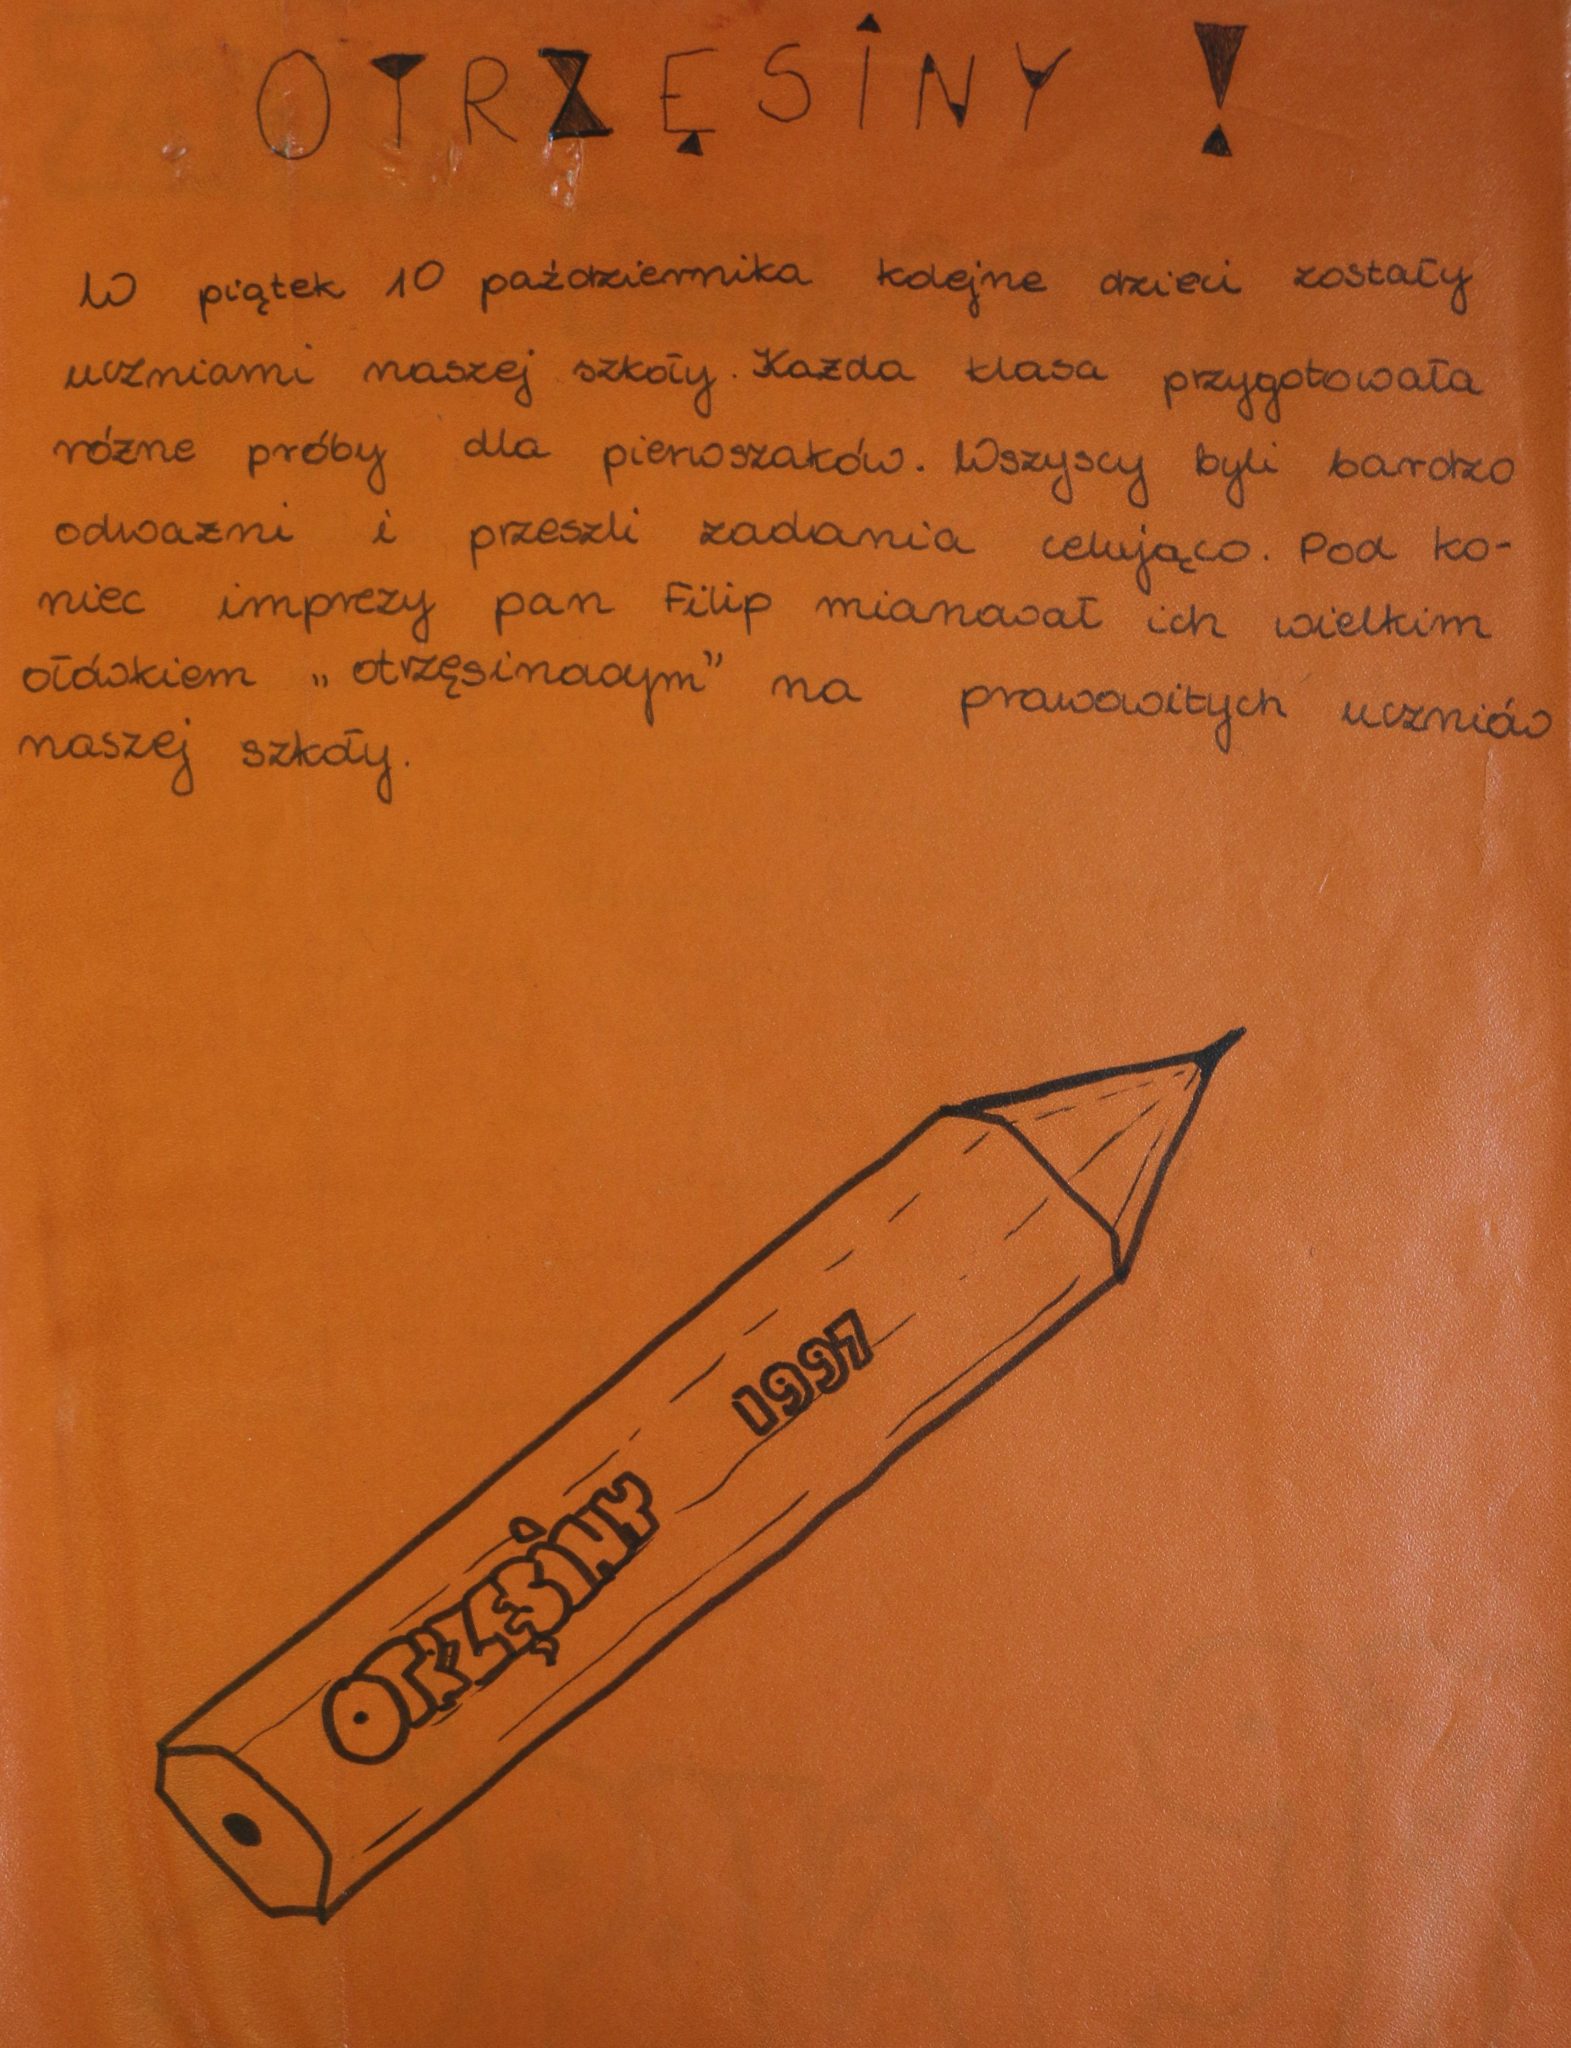 OTRZĘSINY !
W piątek 10 października kolejne dzieci zostały
uczniami naszej szkoły. Każda klasa przygotowała
różne próby dla pierwszaków. Wszyscy byli bardzo
odważni i przeszli zadania celująco. Pod ko-
niec imprezy pan Filip mianował ich wielkim
ołówkiem „otrzęsinowym” na prawowitych uczniów
naszej szkoły.
OTRZĘSINY 1997